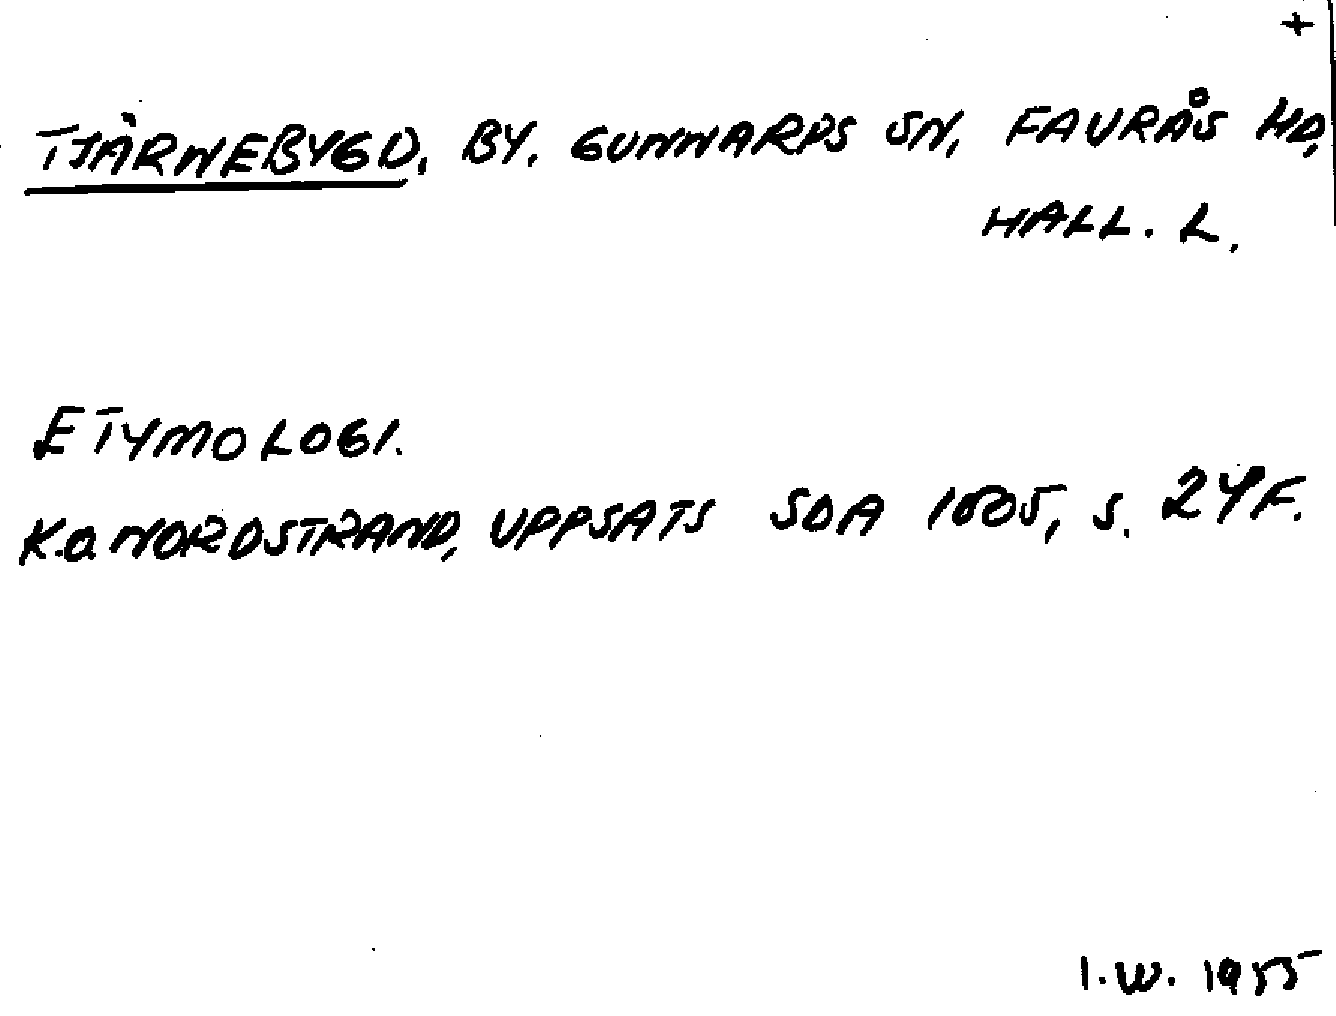 +
TJÄRNEBYGD, BY. GUNNARPS SN, FAURÅS HD,
HALL. L.
ETYMOLOGI.
K.O. NORDSTRAND, UPPSATS SOA 1505, S. 24F.
I.W. 1955